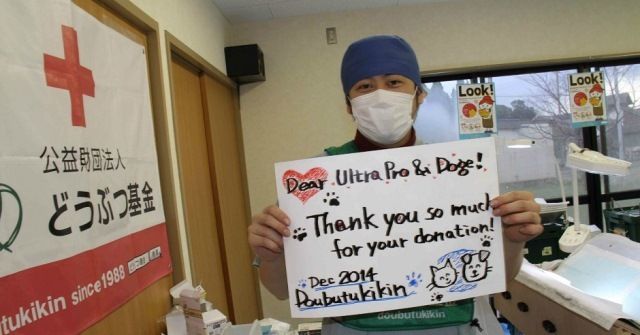 公益財団法人
どうぶつ基金
ubutukikin since1988
Look!
Look!
Dear Ultra Pro & Doge!
Thank you so much
for your donation!
Dec 2014
Doubutukikin
doubutukikin